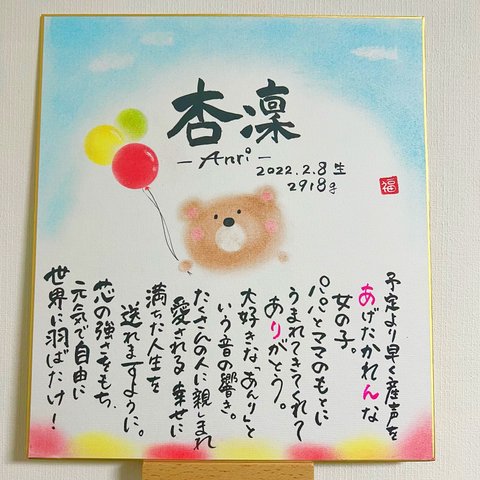 杏凜
-Anri-
2022.2.8生
2918g
福
予定より早く産声を
あげたかれんな
女の子。
パパとママのもとに
うまれてきてくれて
ありがとう。
大好きな「あんり」と
いう音の響き。
たくさんの人に親しまれ
愛される 幸せに
満ちた人生を
送れますように。
芯の強さをもち、
元気で自由に
世界に羽ばたけ!